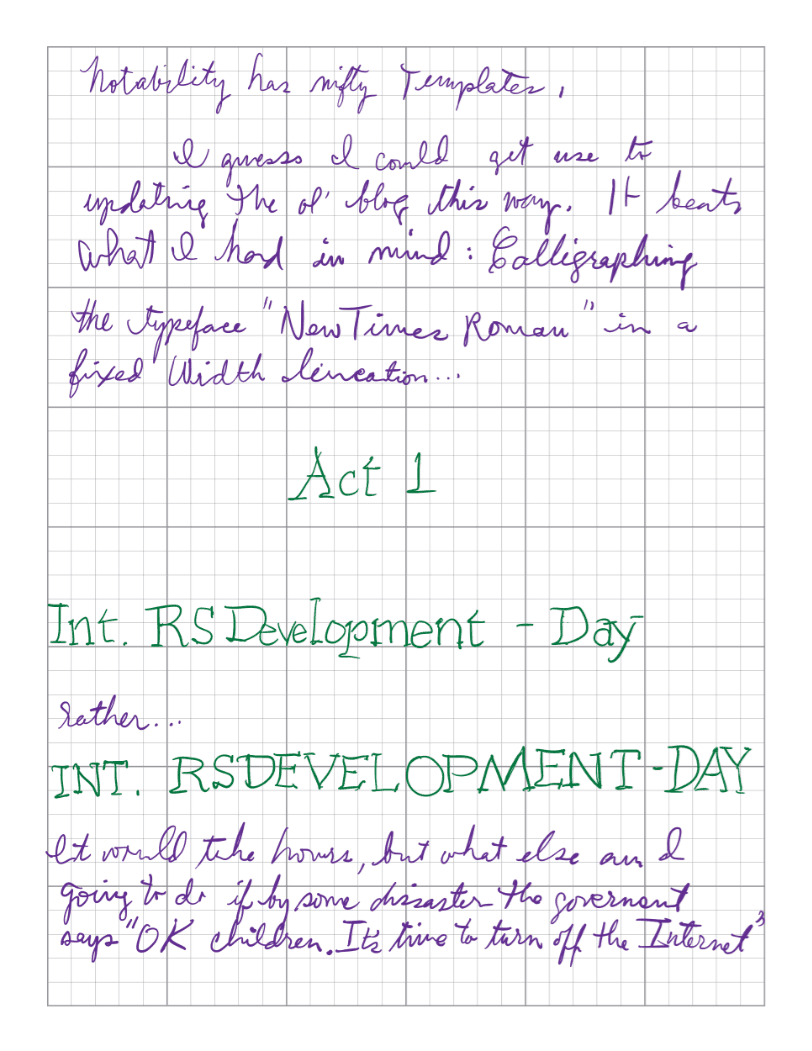 Notability has nifty Templates,
I guess I could get use to
updating the ol' blog this way. It beats
what I had in mind: Calligraphing
the typeface "New Times Roman" in a
fixed Width lineation...
Act 1
Int. RS Development - Day
rather...
INT. RSDEVELOPMENT-DAY
It would take hours, but what else am I
going to do if by some disaster the goverment
says "OK children. It's time to turn off the Internet"